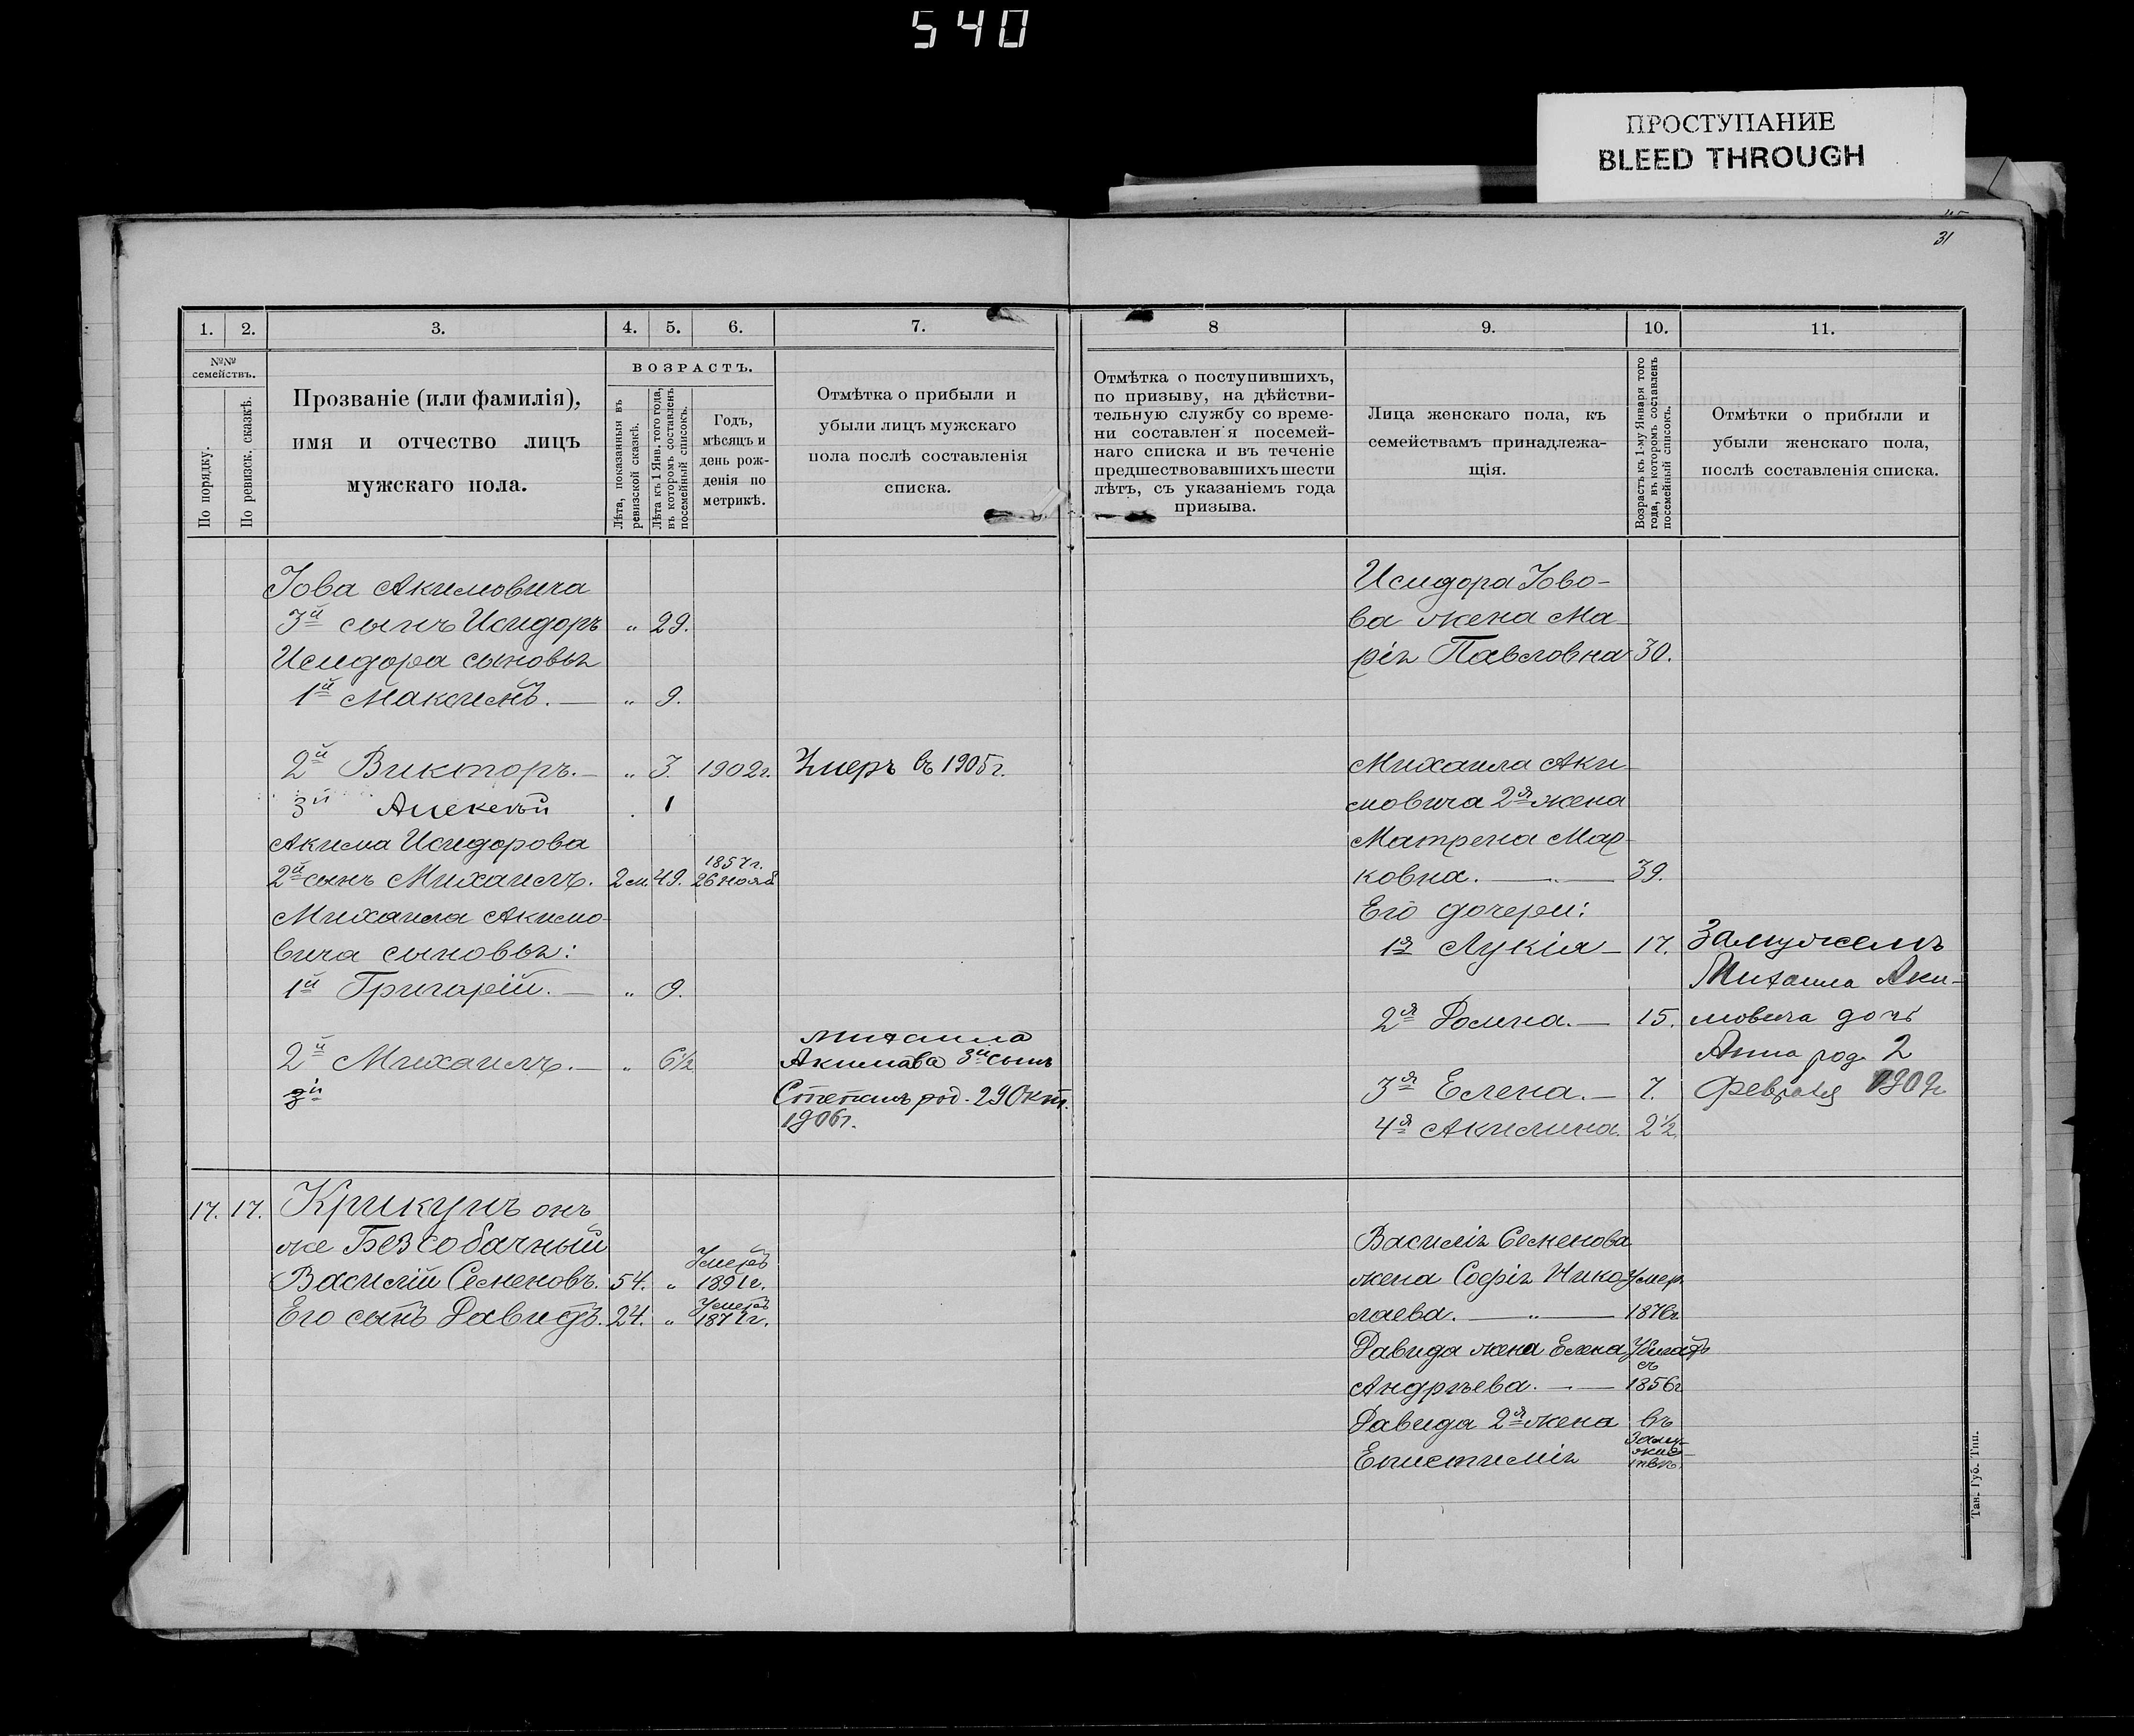 540
ПРОСТУПАНИЕ
BLEED THROUGH
31
1.
2.
3.
4.
5.
6.
7.
8
9.
10.
11.
№№ семействъ.
По порядку.
По ревизск. сказкѣ.
Прозваніе (или фамилія),
имя и отчество лицъ
мужскаго пола.
ВОЗРАСТЪ.
Лѣта, показанныя въ
ревизской сказкѣ.
Лѣта къ 1 Янв. того года,
въ которомъ составленъ
посемейный списокъ.
Годъ,
мѣсяцъ и
день рож-
денія по
метрикѣ.
Отмѣтка о прибыли и
убыли лицъ мужскаго
пола послѣ составленія
списка.
Отмѣтка о поступившихъ,
по призыву, на дѣйстви-
тельную службу со време-
ни составлен я посемей-
наго списка и въ теченіе
предшествовавшихъ шести
лѣтъ, съ указаніемъ года
призыва.
Лица женскаго пола, къ
семействамъ принадлежа-
щія.
Возрастъ къ 1-му Января того
года, въ которомъ составленъ
посемейный списокъ.
Отмѣтки о прибыли и
убыли женскаго пола,
послѣ составленія списка.
Іова Акимовича
3й сынъ Исидоръ " 29.
Исидора сыновья
1й Максимъ. — " 9.
2й Викторъ. — " 3. 1902г. Умеръ въ 1905г.
3й Алексѣй . 1
Акима Исидорова
1857г.
2й сынъ Михаилъ. 2 м. 49. 26 нояб
Михаила Акимо-
вича сыновья:
1й Григорій. — " 9.
2й Михаилъ. — " 6½
3й
Михаила
Акимова 3й сынъ
Степанъ род. 29 Окт.
1906г.
Исидора Іово-
ва жена Ма-
рія Павловна 30.
Михаила Аки-
мовича 2я жена
Матрена Мар-
ковна. — " — 39.
Его дочери:
1я Лукія — 17. Замужемъ
2я Домна. — 15.
3я Елена. — 7.
4я Акилина. 2½
Михаила Аки-
мовича дочь
Анна род. 2
Февраля
17. 17. Крикунъ онъ
же Безсобачный
Умеръ
Василій Семеновъ. 54. " 1891г.
Умеръ
Его сынъ Давидъ. 24. " 1871г.
Василія Семенова
жена Софія Нико- Умер.
лаева. — " — 1876г
Давида жена Елена
Андрѣева. — 1856г
Давида 2я жена въ
Епистимія Заму-
жествѣ.
Тав. Губ. Тип.